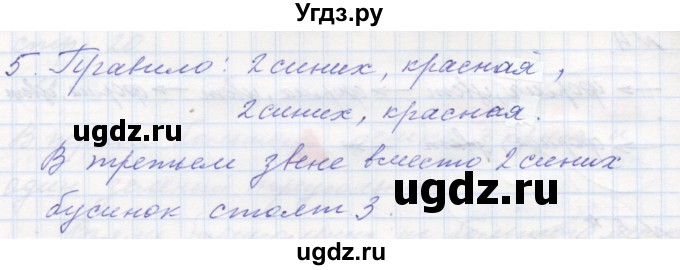 Угдз.ру
5. Правило: 2 синих, красная,
2 синих, красная.
uгдz.ru
В третьем звене вместо 2 синих
uгдz.ru
бусинок стоят 3.
uгдz.ru
uгдz.ru